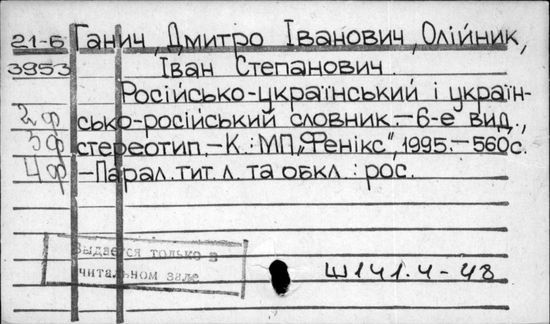 21-6 Ганич, Дмитро Іванович, Олійник,
3953 Іван Степанович.
Російсько-український і україн-
2ф сько-російський словник.-6-е вид.,
3ф стереотип.-К.:МП„Фенікс", 1995.-560с.
4ф -Парал.тит.л. та обкл.: рос.
Выдается только в
читальном зале
Ш141.4-48